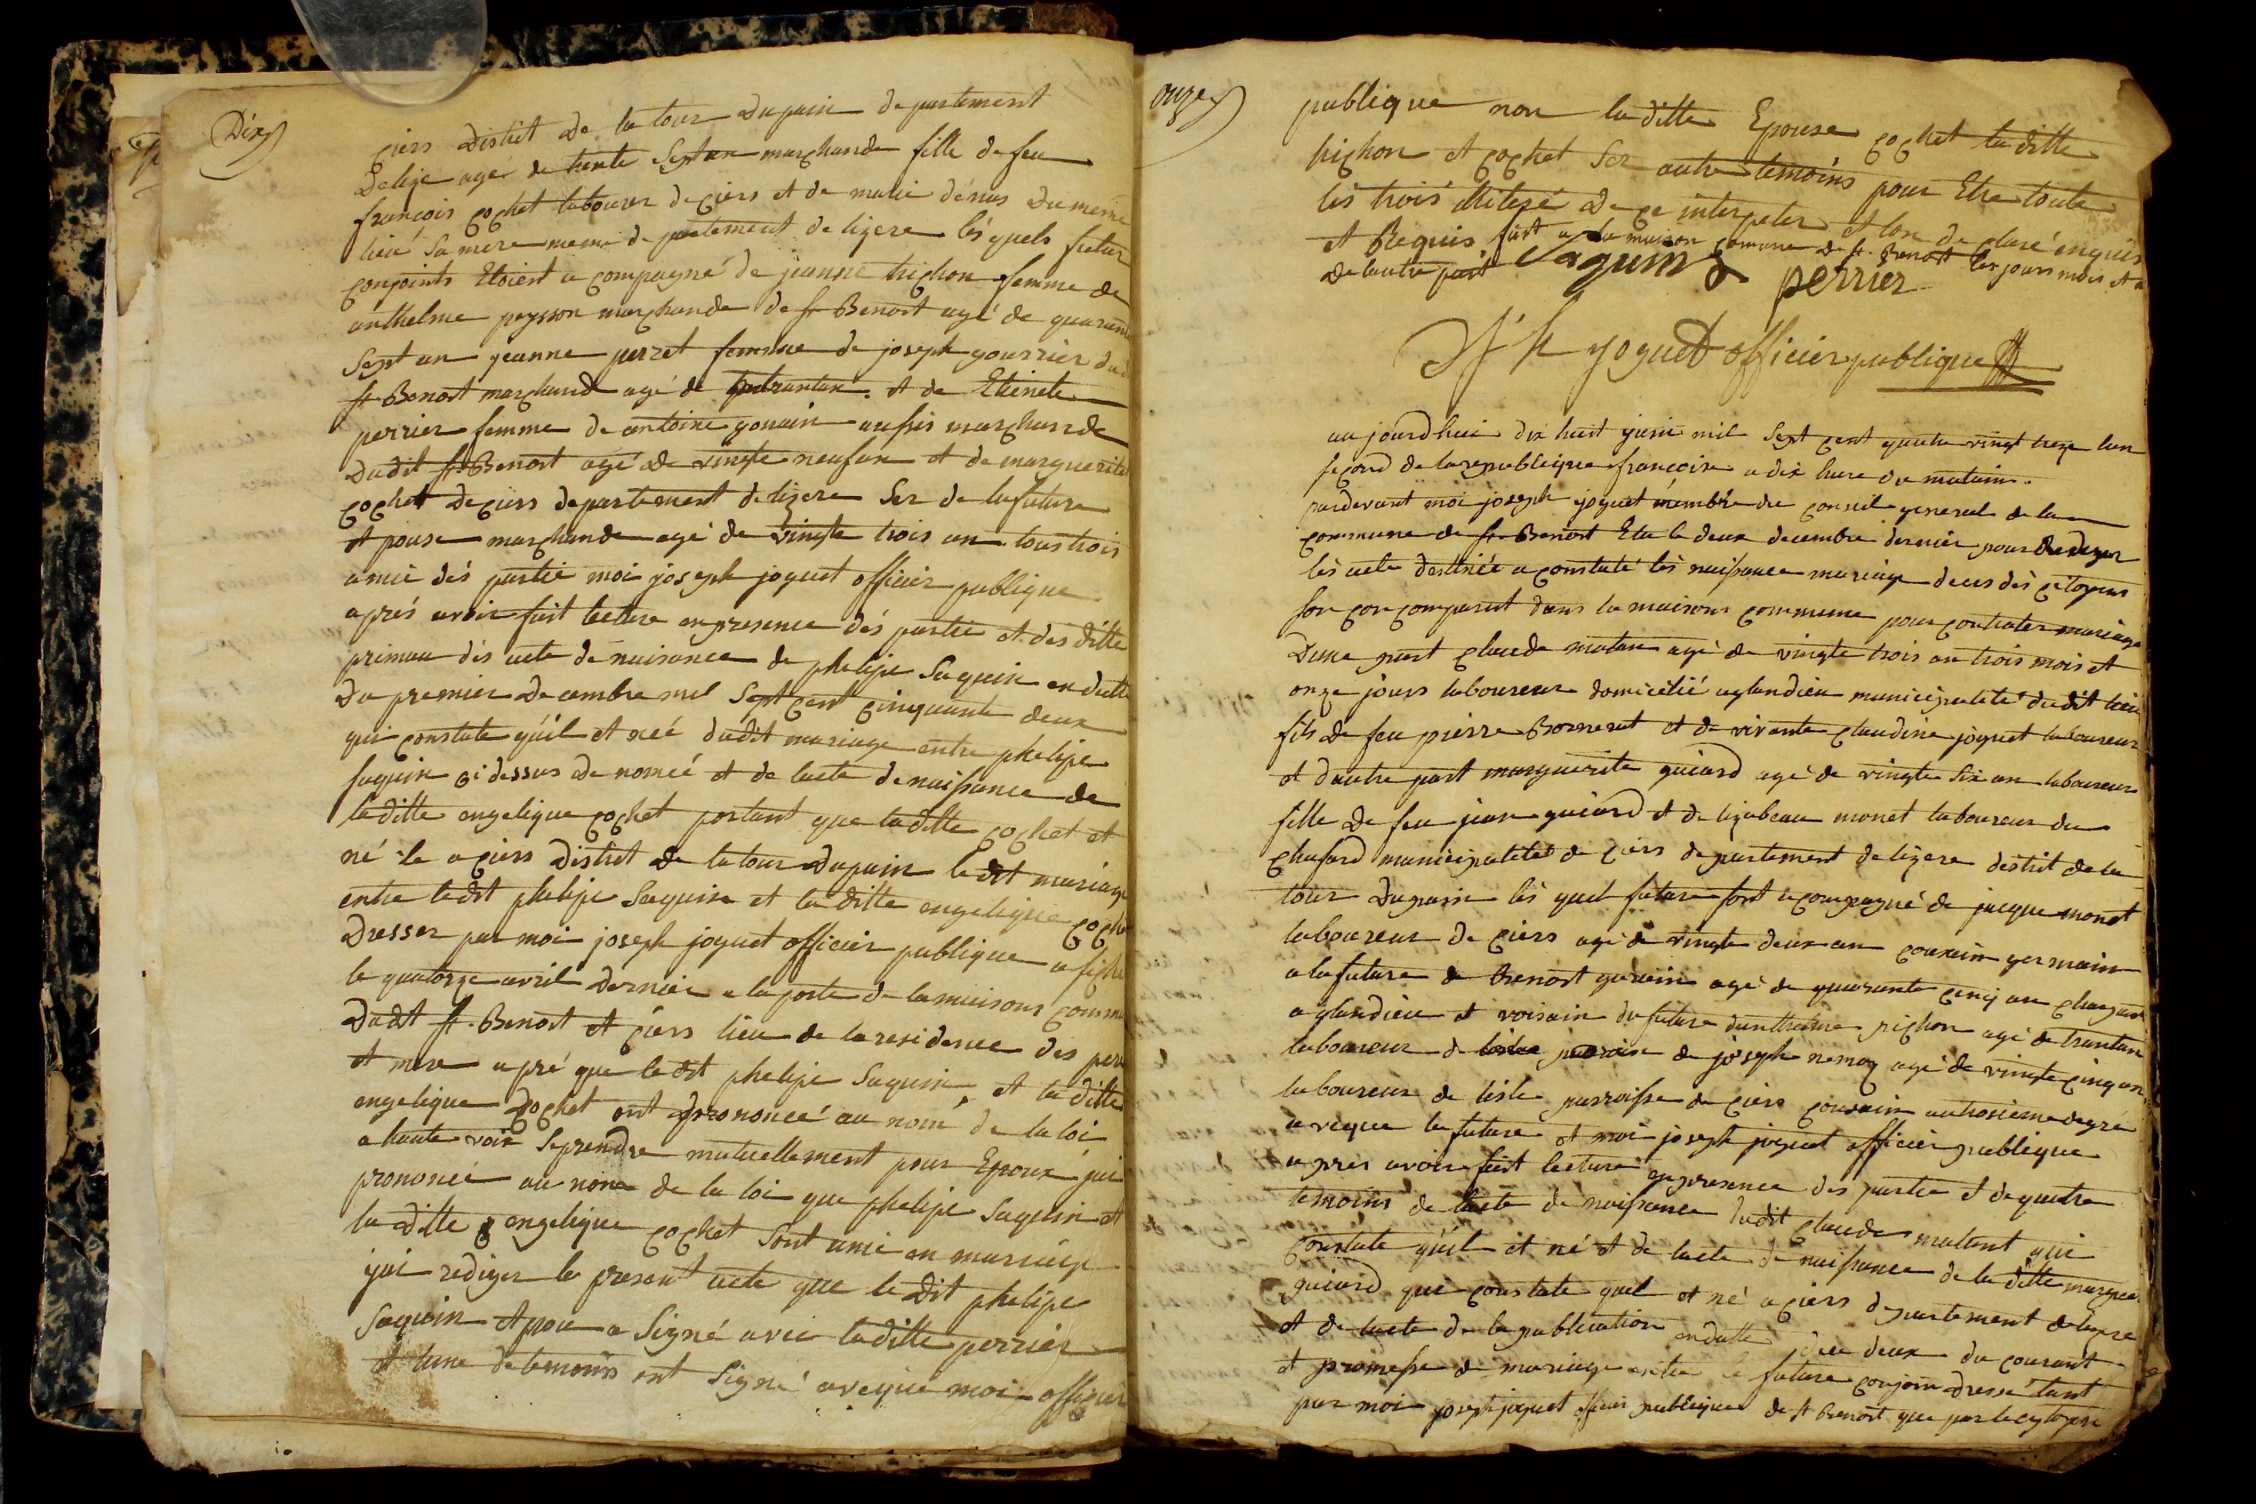 Dix
ciers district de la tour dupain departement
delize agé de trente sept an marchande fille de feu
françois cochet laboureur de ciers et de marie dénus du meme
lieu sa mere meme departement de lizere lés quels futur
conjoints Etoient acompagné de jeanne trichon femme de
anthelme peysson marchande de st Benoit agé de quarante
sept an jeanne perret femme de joseph gourrier dudit
st Benoit marchand agé de et de Etienete
perrier femme de antoine gonnin aussis marchande
dudit st Benoit agé de vingte neufan et de marguerite
cochet de ciers departement de lizere Ser de la future
et pouse marchande agé de vingte trois an tous trois
amie dés partie moi joseph joguet officier publique
aprés avoir fait lecture en presence dés partie et des ditte
primau dés acte de naisance de phelipe Saguin en datte
du premier decembre mil sept cent cinquante deux
qui constate qu'il et neé dudit mariage entre phelipe
saguin ci dessus denomeé et de lacte de naissance de
laditte angelique cochet portant que laditte cochet et
né le a ciers district de la tour dupain ledit mariage
entre ledit phelipe Saguin et la ditte angelique coche
dresser par moi joseph joguet officier publique afiché
le quatorze avril dernier a la porte de la maisons comm
dudit st. Benoit et ciers lieu de la residence des pere
et mere apré que ledit phelipe Saguin et la ditte
angelique Cochet ont prononceé au nom de la loi
a haute voix Seprendre mutuellement pour Epoux jai
prononcé au nom de la loi que phelipe Saguin et
la ditte angelique cochet sont unie en mariage
jai rediger le present acte que le dit phelipe
Saguin Epoux a Signé avec laditte perrier
et lune de temoins ont Signé avecque moi officier
onze
publique non laditte Epouse cochet laditte
trichon et cochet Ser autre temoins pour Etre toute
les trois illiteré de ce interpeler Et lon declaré enquis
et Requis fait a la maison comune de st. Benoit les jours mois et a
de lautre part Saguin perrier
joguet officier publique
aujourdhui dix huit juin mil Sept cent quatre vingt treze lan
second de la republique françoise a dix hure du matain.
pardevant moi joseph joguet membre du conseil general de la
commune de st Benoit Elu le deux decembre dernier pour rediger
lés acte destinée a constaté lés naissance mariage deces dés citoyens
son comparut dans la maisons commune pour contrater mariage
Dune part claude matan agé de vingte trois an trois mois et
onze jours laboureur domicilié aglandieu municipalité dudit lieu
fils de feu pierre Bonnerat et de vivante claudine joguet laboureur
et dautre part marguerite guiard agé de vingte six an laboureur
fille de feu jean guiard et de lizabeau monet laboureur du
chafard municipalité de ciers departement de lizere destrit de la
tour dupain lés quel future sont acompagné de jacque monet
laboureur de ciers agé de vingte deux an couxain germain
a la future de Benoit gonnin agé de quarante cinq an
aglandieu et voisain du future danthelme pichon agé de trantan
laboureur de de joseph nemoz agé de vingte cinq an
laboureur de lisle parroisse de ciers cousain autrosieme degré
avecque la future et moi joseph joguet officier publique
apres avoir fait lecture en presence des partie et de quatre
temoins de lacte de naissance dudit claude matent qui
constate quil et né et de lacte de naissance de la ditte margue
guiard qui constate quel et né a ciers departement de lizere
et de lacte de la publication en datte deux du courant
et promesse de mariage entre le future conjoin dressé tant
par moi joseph joguet officier publique de st Benoit que par le citoyen